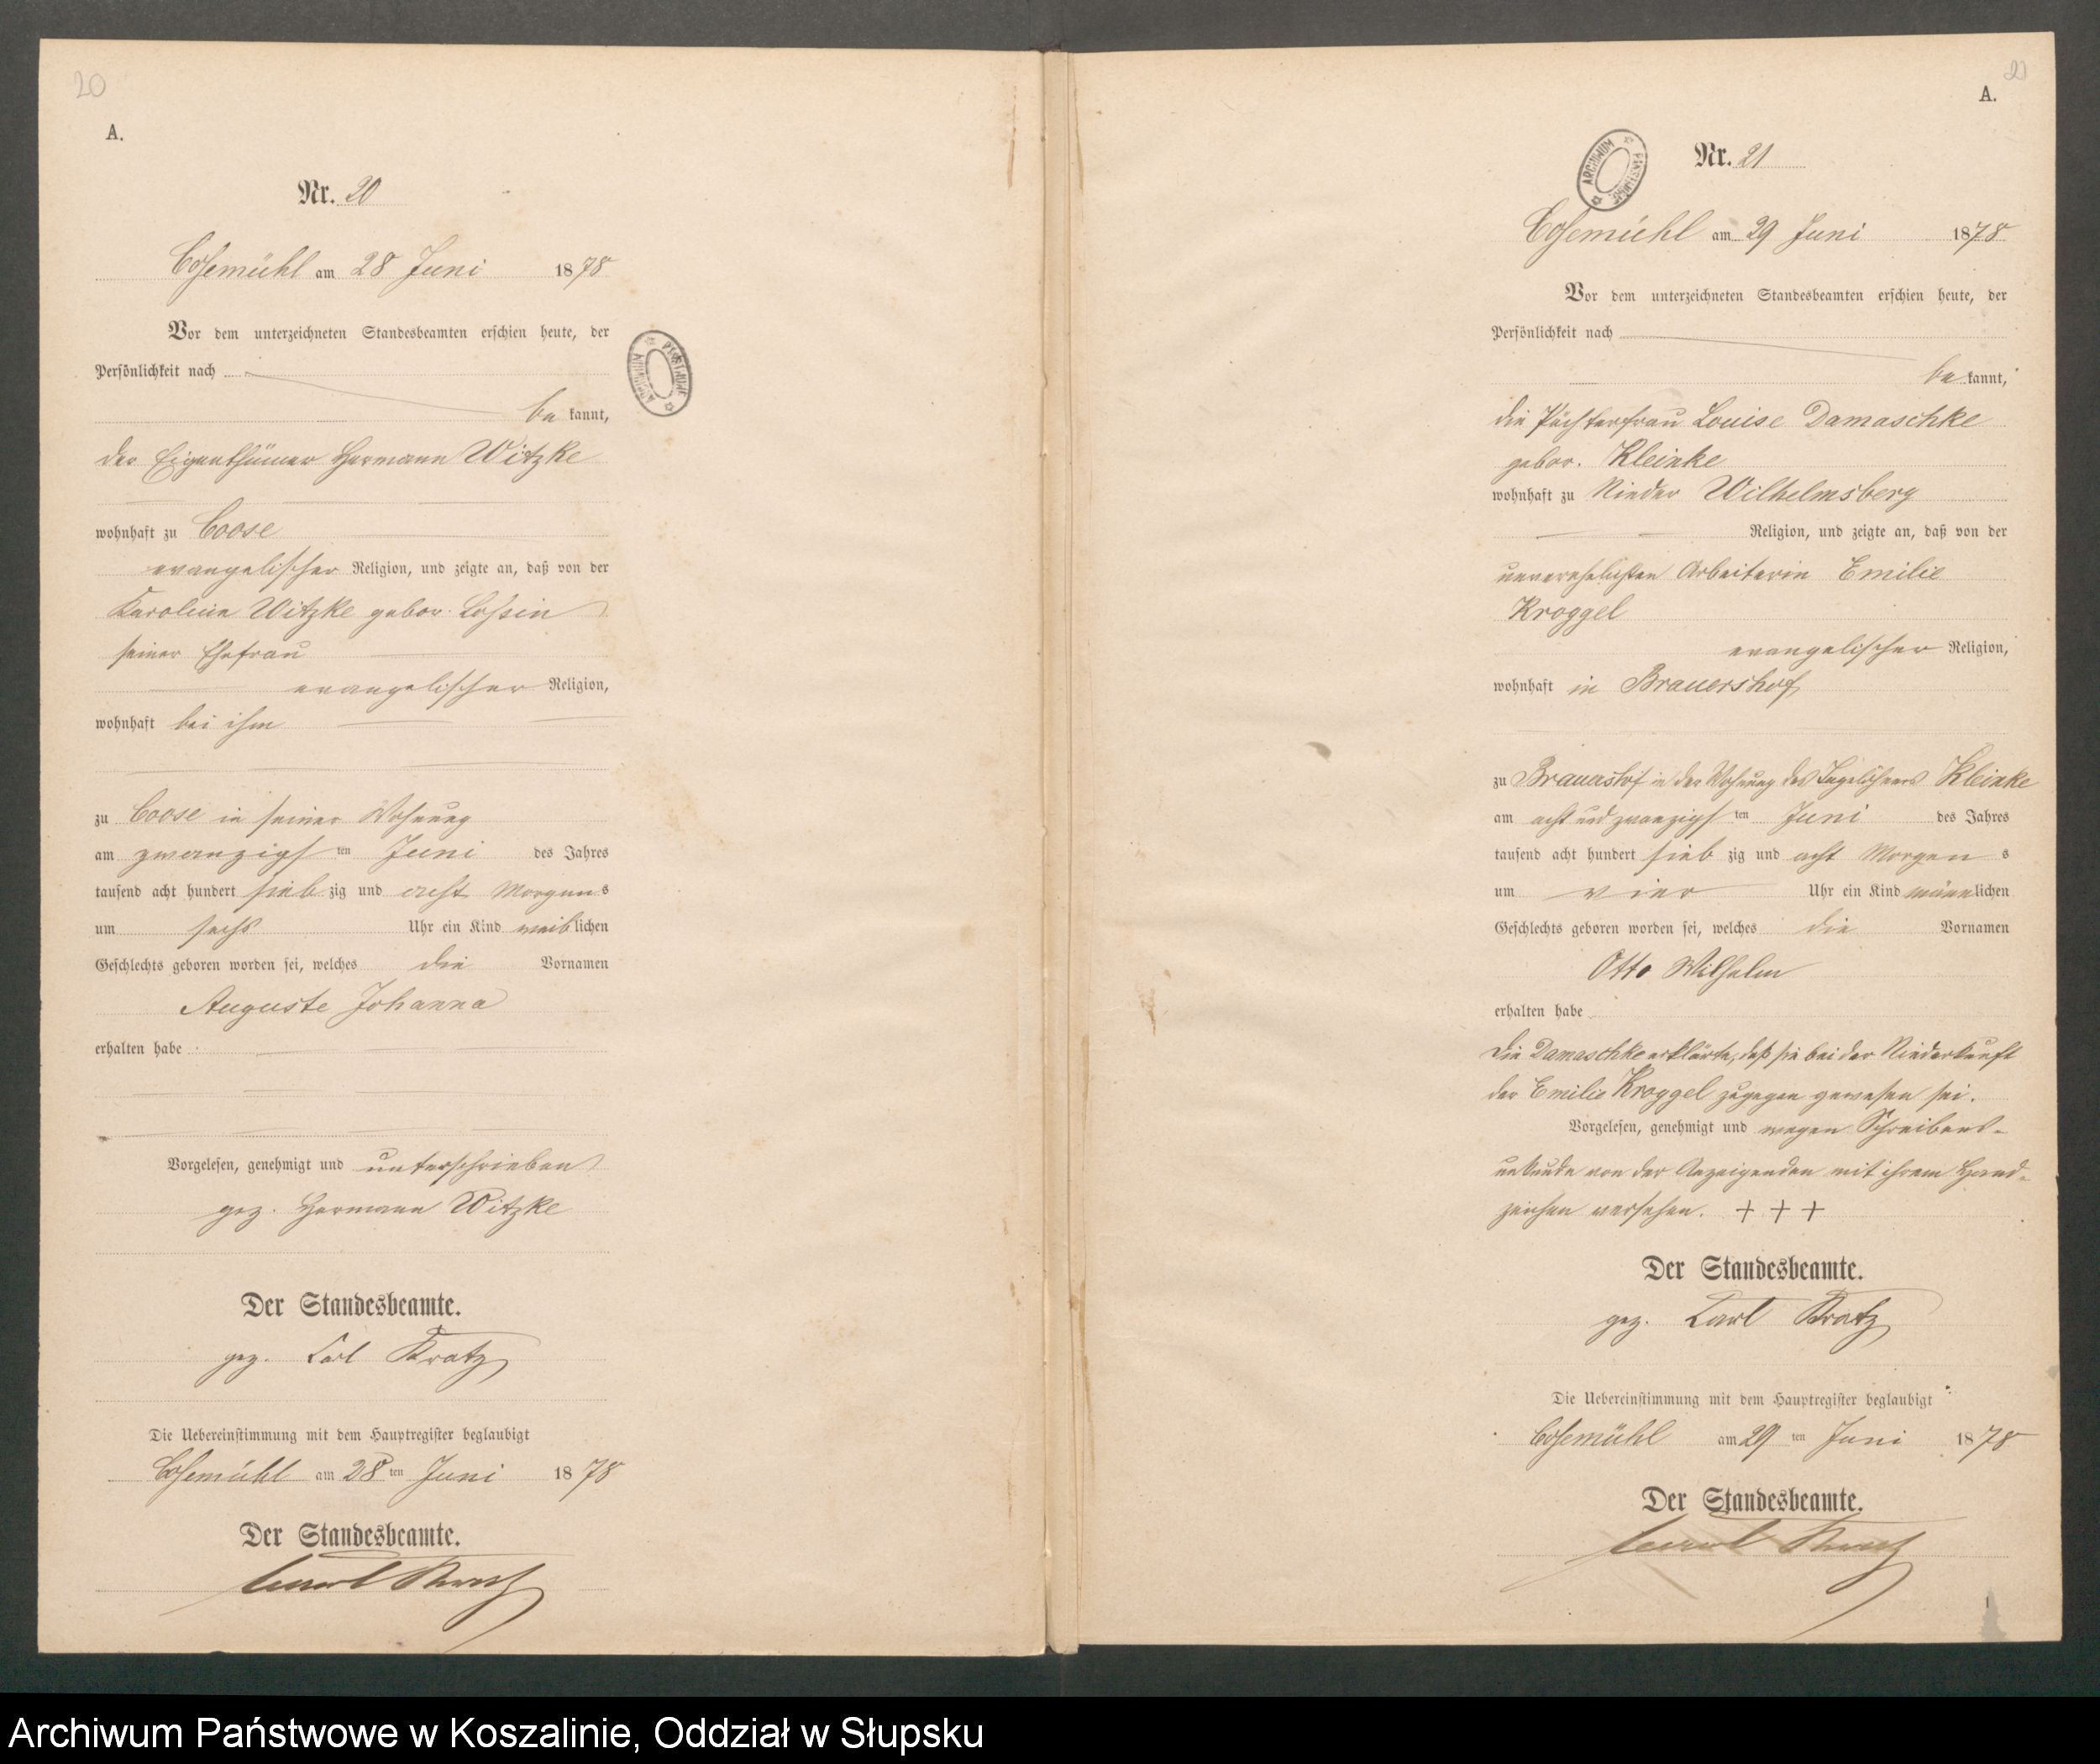 20
A.
Nr. 20
Cosemühl am 28 Juni 1878
Vor dem unterzeichneten Standesbeamten erschien heute, der
Persönlichkeit nach
be kannt,
der Eigenthümer Hermann Witzke
wohnhaft zu Coose
evangelischer Religion, und zeigte an, daß von der
Karoline Witzke gebor. Lossin
seiner Ehefrau
evangelischer Religion,
wohnhaft bei ihm
zu Coose in seiner Wohnung
am zwanzigsten Juni des Jahres
tausend acht hundert siebzig und acht Morgens
um sechs Uhr ein Kind weiblichen
Geschlechts geboren worden sei, welches die Vornamen
Auguste Johanna
erhalten habe
Vorgelesen, genehmigt und unterschrieben
gez. Hermann Witzke
Der Standesbeamte.
gez. Carl Kratz
Die Uebereinstimmung mit dem Hauptregister beglaubigt
Cosemühl am 28ten Juni 1878
Der Standesbeamte.
Carl Kratz
21
A.
ARCHIWUM PAŃSTWOWE
Nr. 21
Cosemühl am 29 Juni 1878
Vor dem unterzeichneten Standesbeamten erschien heute, der
Persönlichkeit nach
be kannt,
die Pächterfrau Louise Damaschke
gebor. Kleinke
wohnhaft zu Nieder Wilhelmsberg
Religion, und zeigte an, daß von der
unverehelichten Arbeiterin Emilie
Kroggel
evangelischer Religion,
wohnhaft in Brauershof
zu Brauershof in der Wohnung des Tagelöhners Kleinke
am acht und zwanzigsten Juni des Jahres
tausend acht hundert siebzig und acht Morgens
um vier Uhr ein Kind männlichen
Geschlechts geboren worden sei, welches die Vornamen
Otto Wilhelm
erhalten habe
Die Damaschke erklärte, daß sie bei der Niederkunft
der Emilie Kroggel zugegen gewesen sei.
Vorgelesen, genehmigt und wegen Schreibens-
unkunde von der Anzeigenden mit ihrem Hand-
zeichen versehen. + + +
Der Standesbeamte.
gez. Carl Kratz
Die Uebereinstimmung mit dem Hauptregister beglaubigt
Cosemühl am 29ten Juni 1878
Der Standesbeamte.
Carl Kratz
Archiwum Państwowe w Koszalinie, Oddział w Słupsku